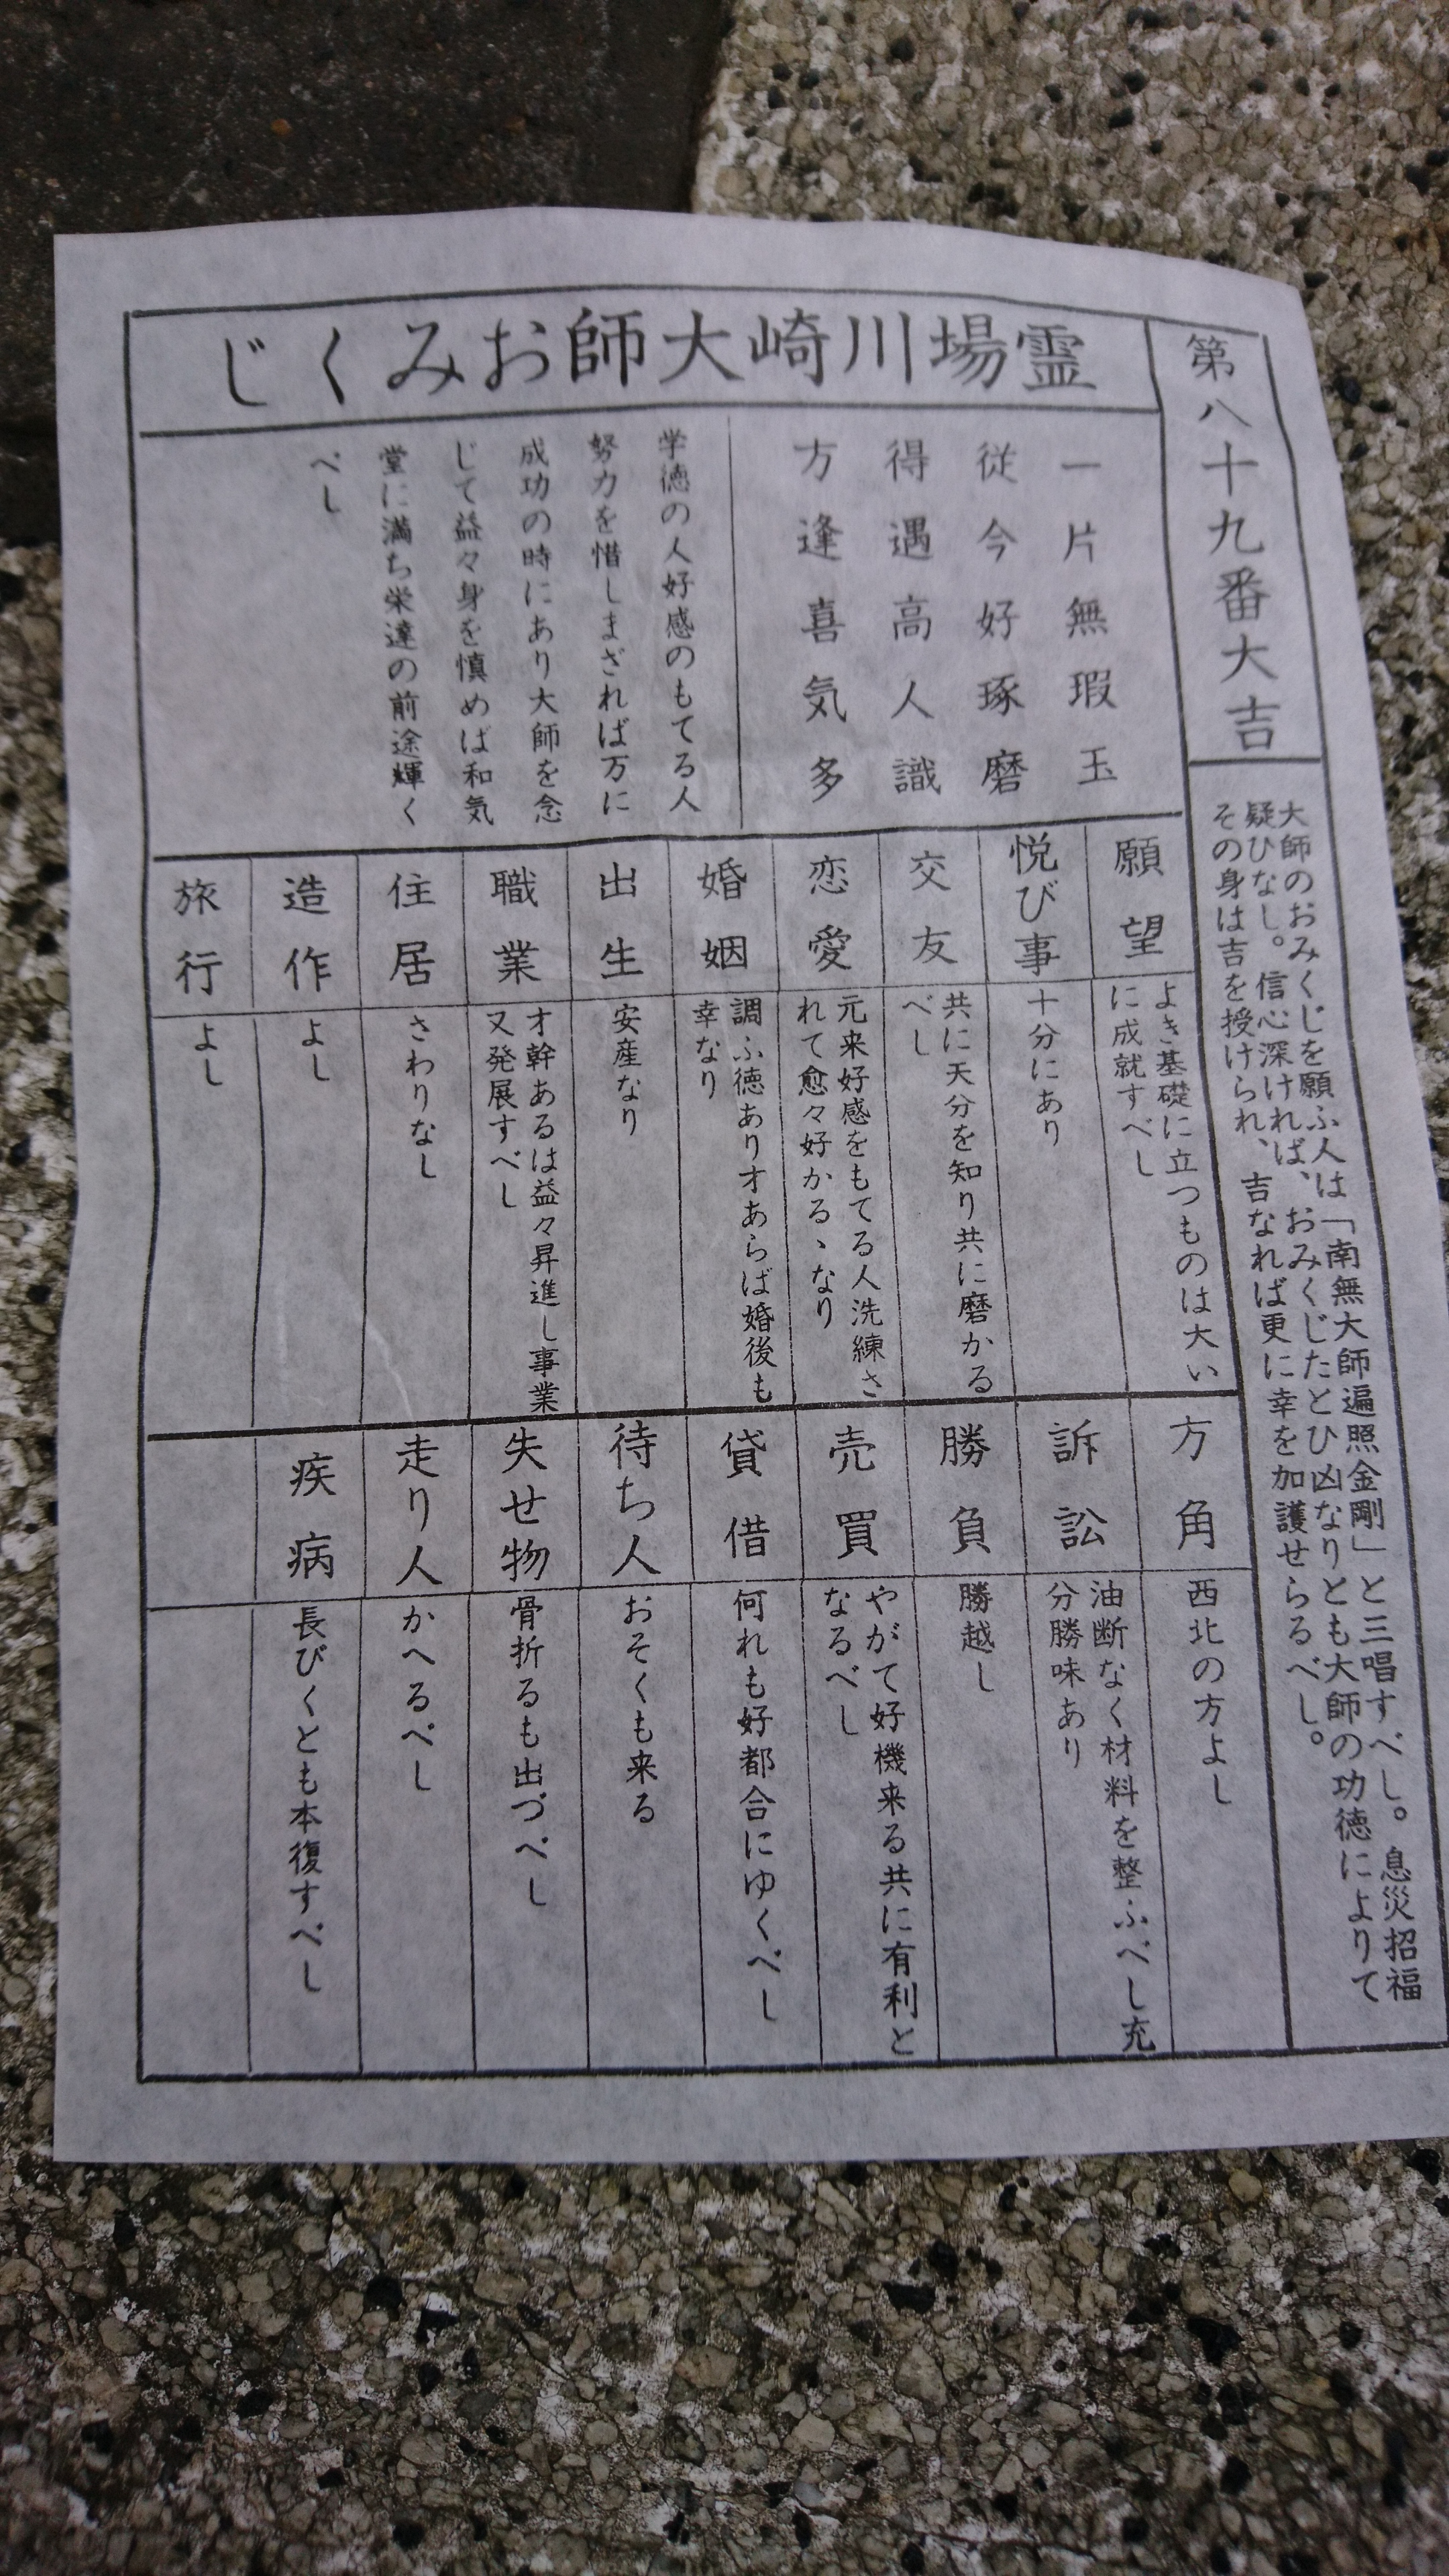 霊場川崎大師おみくじ
第八十九番大吉
大師のおみくじを願ふ人は「南無大師遍照金剛」と三唱すべし。息災招福
疑ひなし。信心深ければ、おみくじたとひ凶なりとも大師の功徳によりて
その身は吉を授けられ、吉なれば更に幸を加護せらるべし。
一片無瑕玉
従今好琢磨
得遇高人識
方逢喜気多
学徳の人好感のもてる人
努力を惜しまざれば万に
成功の時にあり大師を念
じて益々身を慎めば和気
堂に満ち栄達の前途輝く
べし
願望
よき基礎に立つものは大い
に成就すべし
悦び事
十分にあり
交友
共に天分を知り共に磨かる
べし
恋愛
元来好感をもてる人洗練さ
れて愈々好かるゝなり
婚姻
調ふ徳あり才あらば婚後も
幸なり
出生
安産なり
職業
才幹あるは益々昇進し事業
又発展すべし
住居
さわりなし
造作
よし
旅行
よし
方角
西北の方よし
訴訟
油断なく材料を整ふべし充
分勝味あり
勝負
勝越し
売買
やがて好機来る共に有利と
なるべし
貸借
何れも好都合にゆくべし
待ち人
おそくも来る
失せ物
骨折るも出づべし
走り人
かへるべし
疾病
長びくとも本復すべし